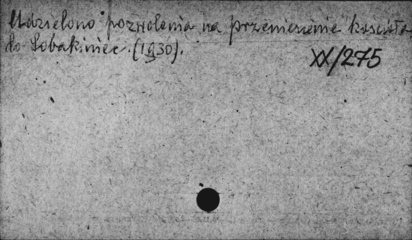 Udzielono pozwolenia na przeniesienie kościoła
do Łobakiniec. (1930).
XX/275